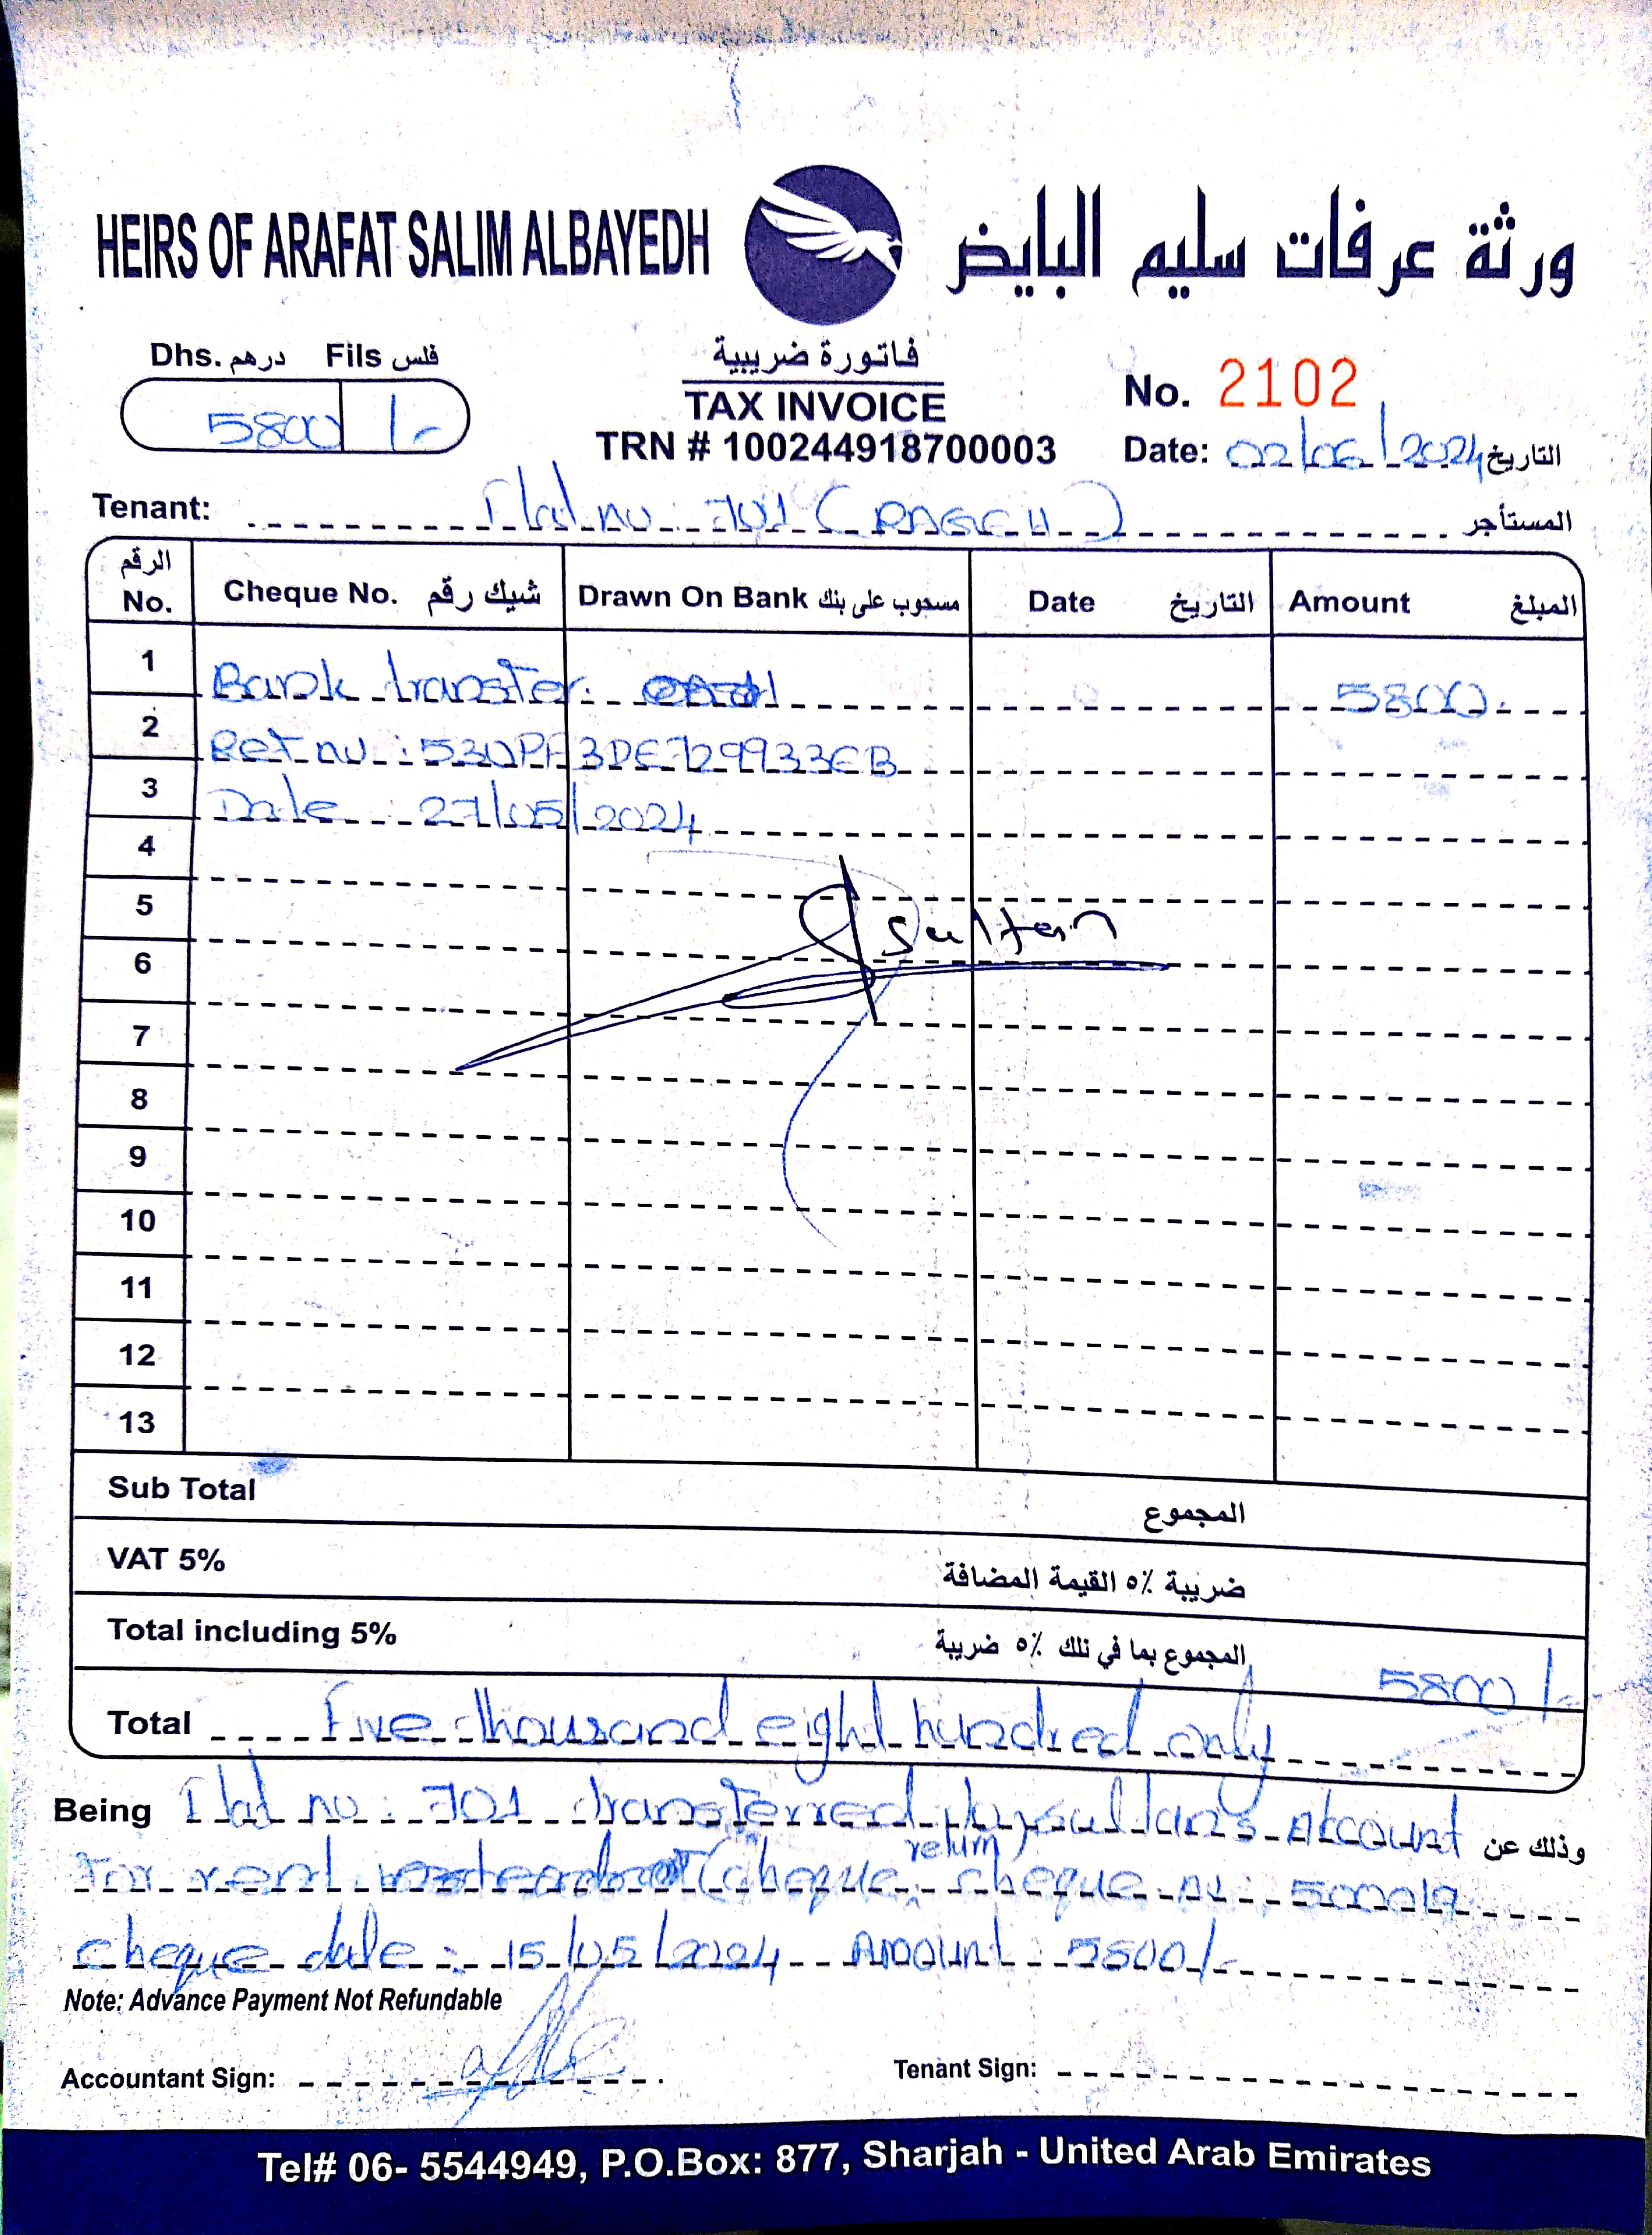 HEIRS OF ARAFAT SALIM ALBAYEDH ورثة عرفات سليم البايض
Dhs. درهم Fils فلس
5800 /-
فاتورة ضريبية
TAX INVOICE
TRN # 100244918700003
No. 2102
Date: 02/06/2024 التاريخ
Tenant: Flat no: 701 (RAGEH) المستأجر
الرقم No. Cheque No. شيك رقم Drawn On Bank مسحوب على بنك Date التاريخ Amount المبلغ
1 Bank transfer. 5800.
2 Ref no: 530PF3DE729933EB
3 Date: 27/05/2024
4
5 Sultan
6
7
8
9
10
11
12
13
Sub Total المجموع
VAT 5% ضريبة ٥٪ القيمة المضافة
Total including 5% المجموع بما في ذلك ٥٪ ضريبة 5800/-
Total Five thousand eight hundred only
Being Flat no: 701 transferred by sultan's Account وذلك عن
For rent (cheque return) cheque no: 500019
cheque date: 15/05/2024 Amount: 5800/-
Note: Advance Payment Not Refundable
Accountant Sign: Tenant Sign:
Tel# 06- 5544949, P.O.Box: 877, Sharjah - United Arab Emirates